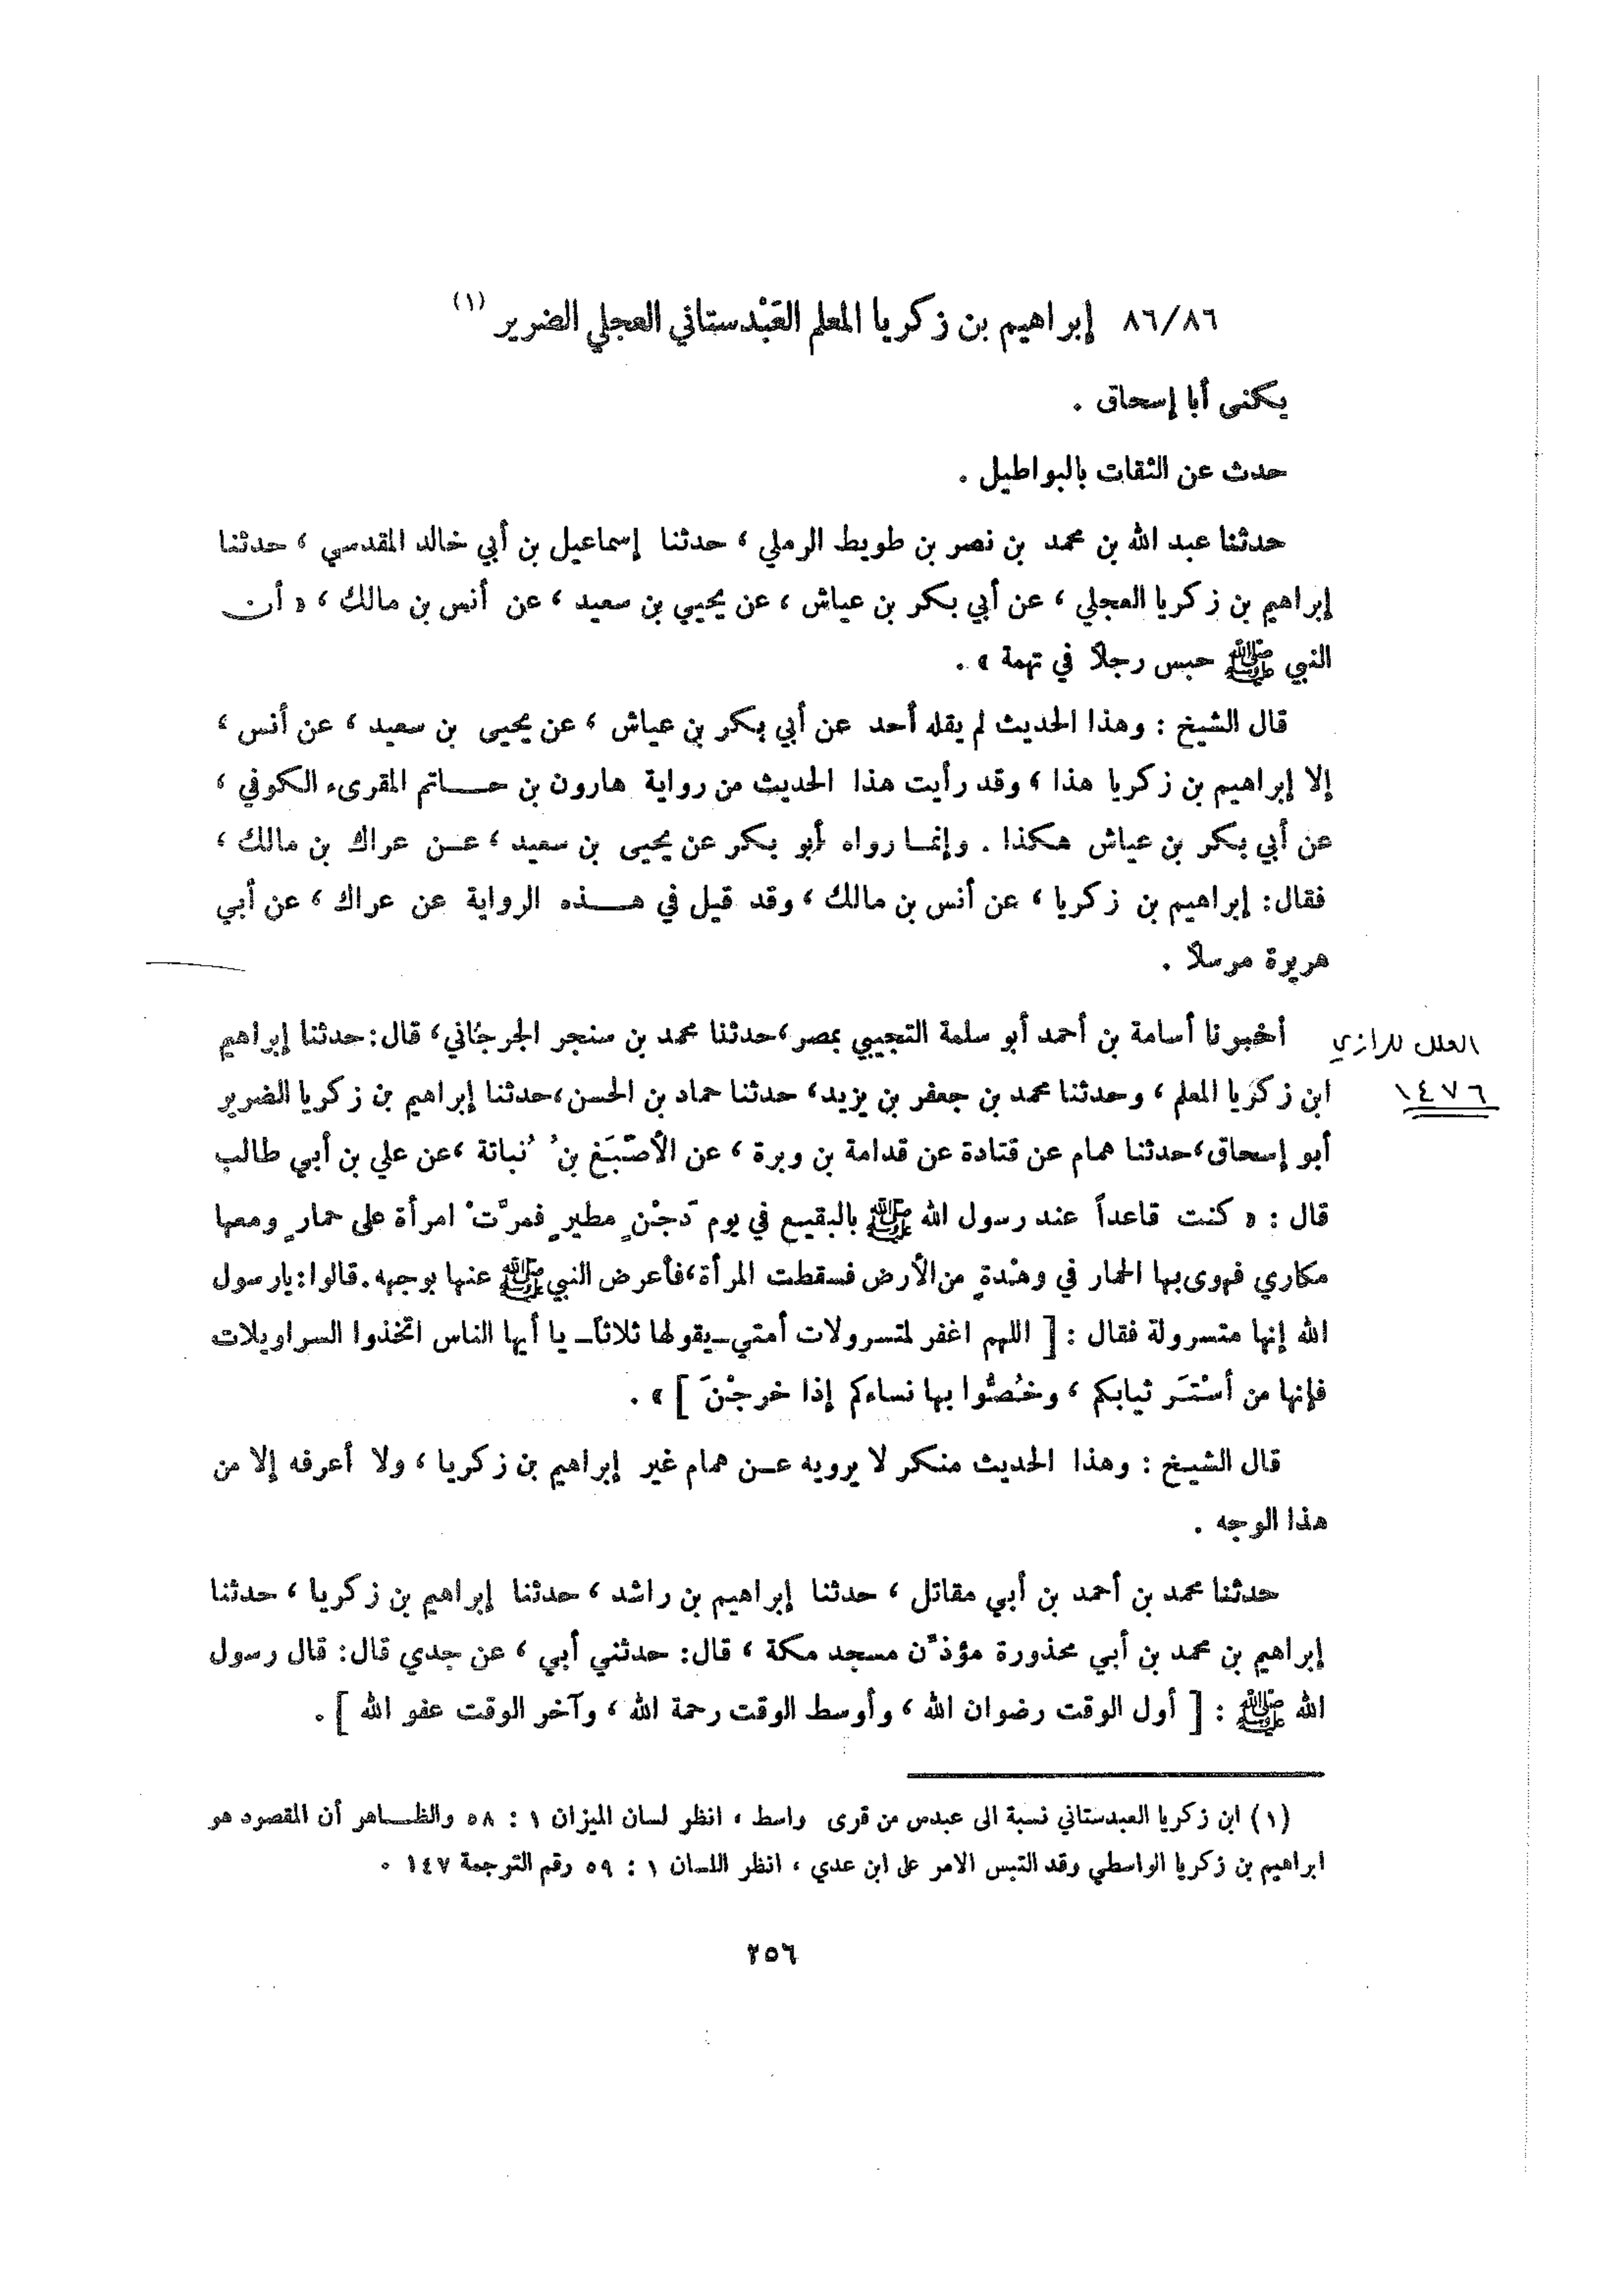 ٨٦/٨٦ إبراهيم بن زكريا المعلم العَبْدستاني العجلي الضرير (١)
يكنى أبا إسحاق .
حدث عن الثقات بالبواطيل .
حدثنا عبد الله بن محمد بن نصر بن طويط الرملي ، حدثنا إسماعيل بن أبي خالد المقدسي ، حدثنا
إبراهيم بن زكريا العجلي ، عن أبي بكر بن عياش ، عن يحيي بن سعيد ، عن أنس بن مالك ، « أن
النبي ﷺ حبس رجلاً في تهمة » .
قال الشيخ : وهذا الحديث لم يقله أحد عن أبي بكر بن عياش ، عن يحيى بن سعيد ، عن أنس ،
إلا إبراهيم بن زكريا هذا ، وقد رأيت هذا الحديث من رواية هارون بن حاتم المقرىء الكوفي ،
عن أبي بكر بن عياش هكذا . وإنما رواه أبو بكر عن يحيى بن سعيد ، عن عراك بن مالك ،
فقال: إبراهيم بن زكريا ، عن أنس بن مالك ، وقد قيل في هذه الرواية عن عراك ، عن أبي
هريرة مرسلاً .
أخبرنا أسامة بن أحمد أبو سلمة التجيبي بمصر ،حدثنا محمد بن سنجر الجرجاني، قال: حدثنا إبراهيم
العلل للرازي
ابن زكريا المعلم ، وحدثنا محمد بن جعفر بن يزيد، حدثنا حماد بن الحسن ،حدثنا إبراهيم بن زكريا الضرير
١٤٧٦
أبو إسحاق،حدثنا همام عن قتادة عن قدامة بن وبرة ، عن الأَصْبَغ بنُ نُباتة ،عن علي بن أبي طالب
قال : « كنت قاعداً عند رسول الله ﷺ بالبقيع في يوم دَجْنٍ مطيرٍ فمرَّتْ امرأة على حمارٍ ومعها
مكاري فهوى بها الحمار في وهْدةٍ من الأرض فسقطت المرأة،فأعرض النبي ﷺ عنها بوجهه . قالوا: يارسول
الله إنها متسرولة فقال : [ اللهم اغفر لمتسرولات أمتي ــ يقولها ثلاثاً ــ يا أيها الناس اتخذوا السراويلات
فإنها من أسْتَر ثيابكم ، وخُصُّوا بها نساءكم إذا خرجْنَ ] » .
قال الشيخ : وهذا الحديث منكر لا يرويه عن همام غير إبراهيم بن زكريا ، ولا أعرفه إلا من
هذا الوجه .
حدثنا محمد بن أحمد بن أبي مقاتل ، حدثنا إبراهيم بن راشد ، حدثنا إبراهيم بن زكريا ، حدثنا
إبراهيم بن محمد بن أبي محذورة مؤذّن مسجد مكة ، قال: حدثني أبي ، عن جدي قال: قال رسول
الله ﷺ : [ أول الوقت رضوان الله ، وأوسط الوقت رحمة الله ، وآخر الوقت عفو الله ] .
(١) ابن زكريا العبدستاني نسبة الى عبدس من قرى واسط ، انظر لسان الميزان ١ : ٥٨ والظاهر أن المقصود هو
ابراهيم بن زكريا الواسطي وقد التبس الامر على ابن عدي ، انظر اللسان ١ : ٥٩ رقم الترجمة ١٤٧ .
٢٥٦